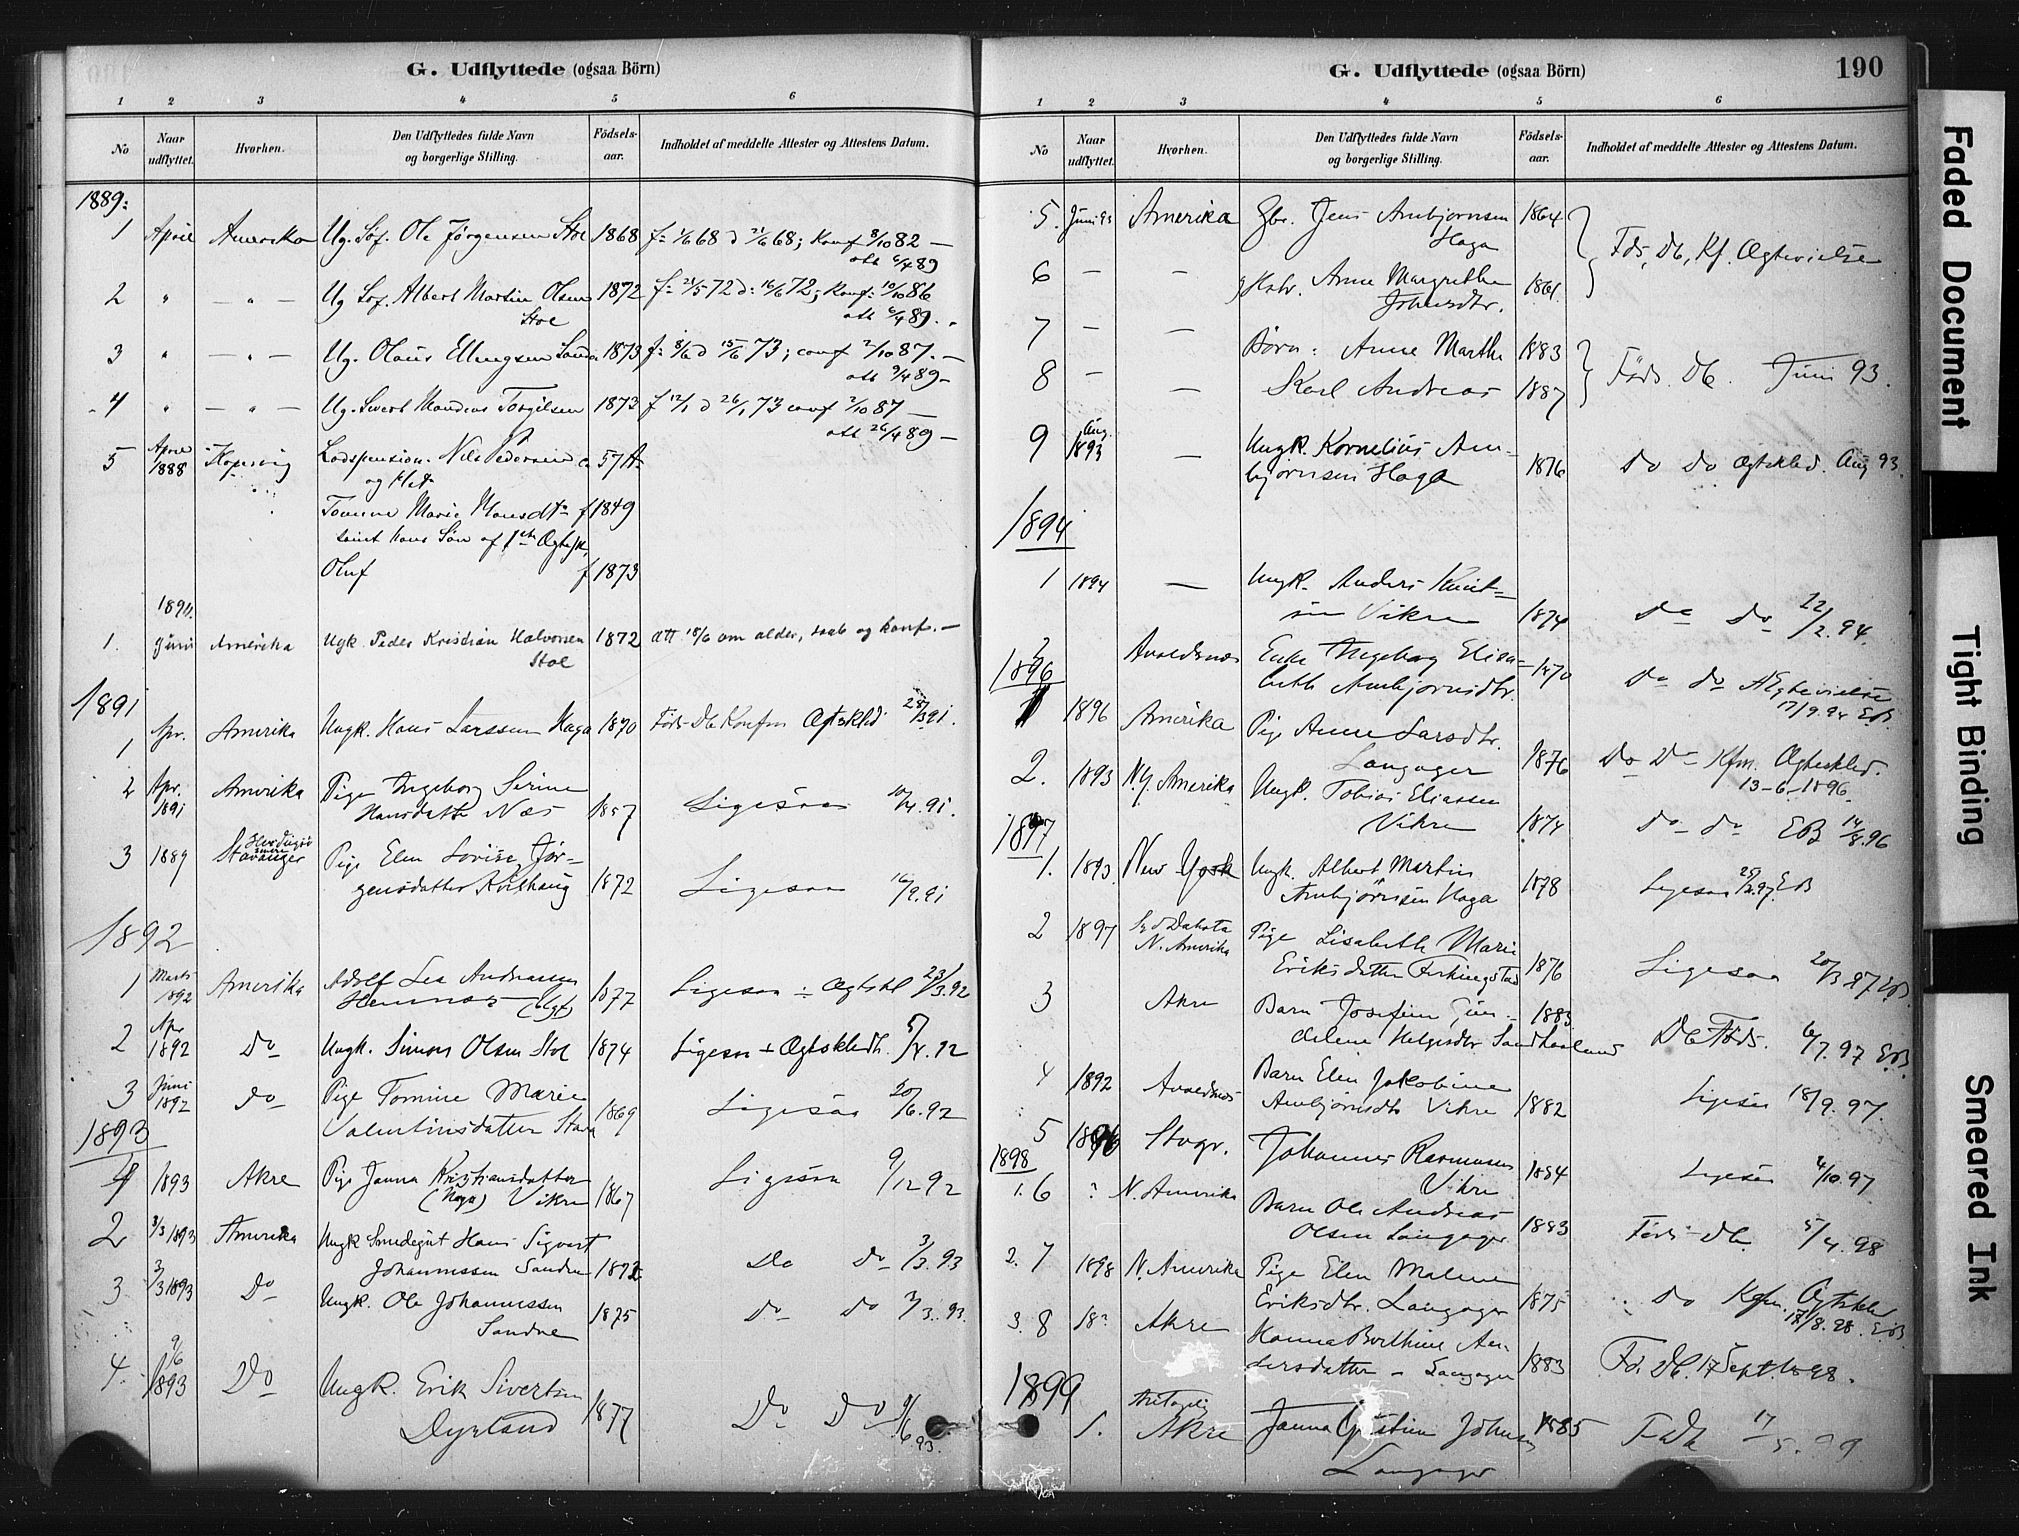 G. Udflyttede (ogsaa Börn)
1 2 3 4 5 6
No Naar udflyttet. Hvorhen. Den Udflyttedes fulde Navn og borgerlige Stilling. Födsels-aar. Indholdet af meddelte Attester og Attestens Datum.
1889:
1 April Amerika Ug. Söf. Ole Jørgensen Stol 1868 f: 1/6 68 d 21/6 68; Konf 8/10 82 —
att 6/4 89
2 " — " — Ug Sof. Albert Martin Olsen 1872 f: 21/5 72 d: 16/6 72; Konf: 10/10 86
Stol att 6/4 89.
3 " — " — Ug. Olaus Ellingsen Sand 1873 f: 8/6 d 15/6 73; conf 2/10 87. —
att 9/4 89 —
4 " — " — Ug. Sivert Torgilsen 1873 f 12/1 d 26/1 73 conf 2/10 87 —
att 26/4 89 —
5 April 1888 Kopervig Lodspension. Nils Pedersen 57 A
og
Tomine Marie 1849
samt hans Søn af 1ste
Oluf f 1873
1890
1. Juni Amerika Ugk. Peder Kristian Halvorsen 1872 att 18/6 om alder, daab og konf. —
Stol
1891
1 Apr. Amerika Ungk. Hans Larssen Haga 1870 Føds Db Konfm Ægtskbd 28/3 91.
2 Apr. 1891 Amerika Pige Ingeborg Serine
Hansdatter Næs 1857 Ligesaa 10/4 91.
3 1889 Stavanger Pige Elen Lovise Jør-
gensdatter Kvilhaug 1872 Ligesaa 16/9. 91
1892
1 Marts 1892 Amerika Adolf Lea Andreassen
Hemnes (Ugt) 1877 Ligesaa : Ægtskl 23/3. 92
2 Apr 1892 Do Ungk. Simon Olsen Stol 1874 Ligesaa + Ægtskbdh. 5/4. 92
3 Juni 1892 Do Pige Tomine Marie
Valentinsdatter Stava 1869 Ligesaa 20/6. 92
1893
1 1893 Akre Pige Janna Kristiansdatter
(Haga) Vikre 1867 Ligesaa 9/12 92
2 3/3 1893 Amerika Ungk Smedegut Hans Sigvart
Johannessen Sandve 1872 Do Do 3/3. 93
3 3/3 1893 Do Ungk. Ole Johannessen
Sandve 1875 Do Do 3/3. 93.
4. 9/6 1893 Do Ungk. Erik Sivertsen
Dyrland 1877 Do Do 9/6 93.
G. Udflyttede (ogsaa Börn) 190
1 2 3 4 5 6
No Naar udflyttet. Hvorhen. Den Udflyttedes fulde Navn og borgerlige Stilling. Födsels-aar. Indholdet af meddelte Attester og Attestens Datum.
5. Juni 93 Amerika Gbr. Jens Ambjørnsen 1864
Haga Føds, Db, Kf. Ægtevielse
6 — — Anne Margrethe
Johnsdtr. 1861.
7 — — Børn: Anne Marthe 1883
8 — — Karl Andreas 1887 Føds. Db. Juni 93.
9 Aug. 1893 — Ungk. Kornelius Am-
bjørnsen Haga 1876 Do Do Ægtskbd. Aug 93.
1894
1 1894 — Ungk. Anders Knut-
sen Vikre 1874 Do Do 22/2. 94.
2 Avaldsnes Enke Ingeborg Elisa-
beth Ambjørnsdtr. 1870 Do Do Ægtevielse
17/9. 94 EB.
1896
1 1896 Amerika Pige Anne Larsdtr.
Langager 1876 Do Do Kfm. Ægteskbd.
13-6-1896.
2. 1893 N. Amerika Ungk. Tobias Eliassen
Vikre 1874 Do Do EB 14/8. 96
1897
1. 1893. New York Ungk. Albert Martin
Ambjørnsen Haga 1878 Ligesaa 25/2. 97. EB
2 1897 Syd Dakota
N. Amerika Pige Lisabeth Marie
Eriksdatter Ferkingstad 1876 Ligesaa 20/3 97 EB.
3 Akre Barn Josefine Gun-
delene Helgesdtr Sandhaaland 1883 Db Føds. 6/7. 97 EB.
4 1892 Avaldsnes Barn Elen Jakobine
Ambjørnsdtr Vikre 1882 Ligesaa 18/9. 97.
5 1896 Stvgr. Johannes Rasmussen
Vikre 1884 Ligesaa 4/10. 97
1898
1. 6 ? N. Amerika Barn Ole Andreas
Olsen Langager 1883 Føds Db. 5/4. 98
2. 7 1898 N. Amerika Pige Elen Malene
Eriksdtr. Langager 1875 Do Kfm. Ægtskbd
17/8. 98. EB
3. 8 18? Akre Hanna Berthine An-
dersdatter Langager 1883 Fds. Db. 17 Sept. 1898.
1899
1. Akre Janna Johnsen 1885 17/5. 99
Langager
Faded Document
Tight Binding
Smeared Ink